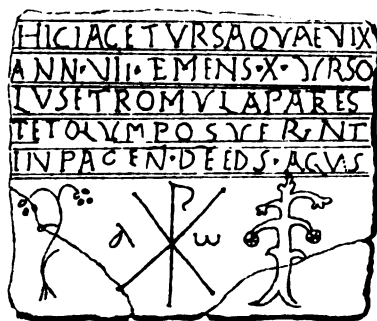 HICIACETVRSAQVAEVIX
ANN·VII·EMENS·X·VRSO
LVSETROMVLAPARES
TETOLVMPOSVERVNT
INPACEN·DEEDS·AGVS
α ω